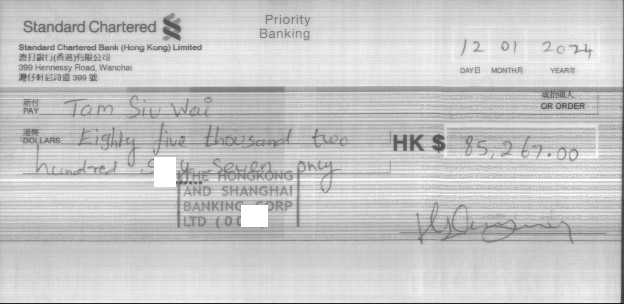 Standard Chartered
Priority
Banking
Standard Chartered Bank (Hong Kong) Limited
渣打銀行(香港)有限公司
399 Hennessy Road, Wanchai
灣仔軒尼詩道 399 號
12 01 2024
DAY日 MONTH月 YEAR年
祈付
PAY Tam Siu Wai
或抬頭人
OR ORDER
港幣
DOLLARS Eighty five thousand two
hundred seven only
HK $ 85,267.00
THE HONGKONG
AND SHANGHAI
BANKING CORP
LTD (00